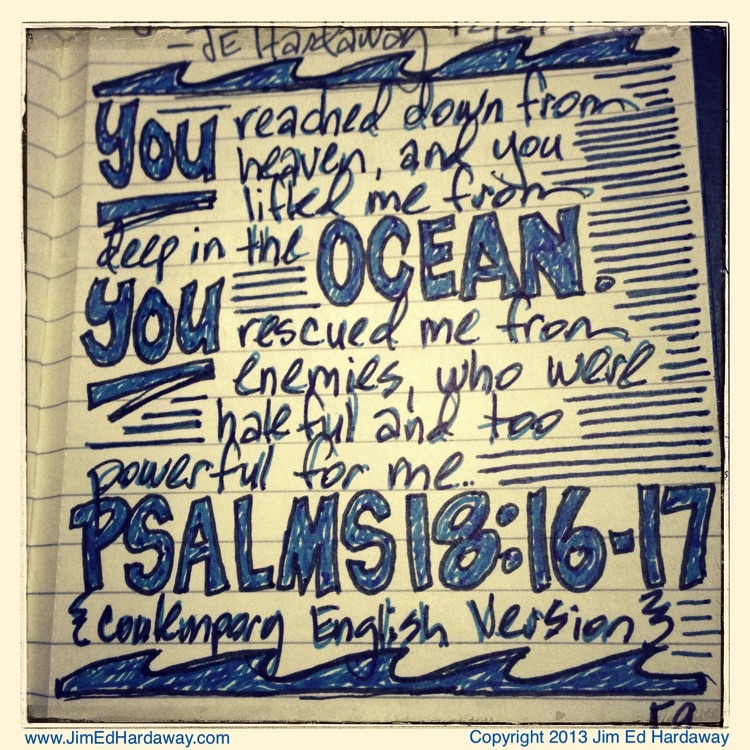 - JE Hardaway
YOU reached down from
heaven, and you
lifted me from
deep in the OCEAN.
YOU rescued me from
enemies, who were
hateful and too
powerful for me..
PSALMS 18:16-17
{Contemporary English Version}
www.JimEdHardaway.com
Copyright 2013 Jim Ed Hardaway